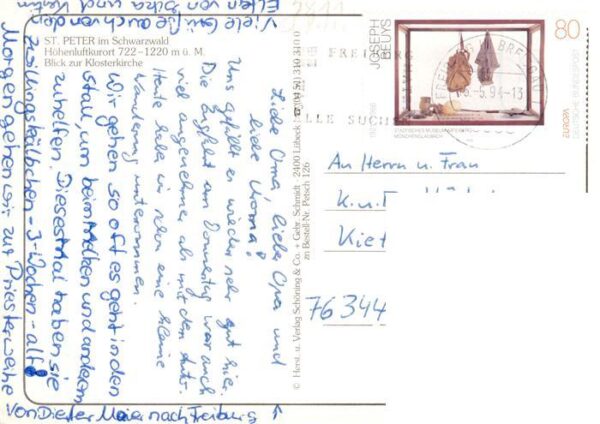 ST. PETER im Schwarzwald
Höhenluftkurort 722-1220 m ü. M.
Blick zur Klosterkirche
Liebe Oma, liebe Opa und
liebe Uroma!
Uns gefällt es wieder sehr gut hier.
Die Anfahrt am Donnerstag war auch
viel angenehmer als mit dem Auto.
Heute habe wir schon eine kleine
Wanderung unternommen.
Wir gehen so oft es geht in den
Stall, um beim Melken und anderem
zu helfen. Diesesmal haben sie
Zwillingskälbchen - 3-Wochen - alt!
Morgen gehen wir zur Priesterweihe
von Dieter Maier nach Freiburg
Viele Grüße auch von den
Eltern von
© Herst. u. Verlag Schöning & Co. + Gebr. Schmidt · 2400 Lübeck
zu Bestell-Nr. Petsch. 126
JOSEPH
BEUYS
80
EUROPA
DEUTSCHE BUNDESPOST
STÄDTISCHES MUSEUM
MÖNCHENGLADBACH
FREIBURG
BREISGAU
5.94-13
An Herrn u. Frau
K. u. E
Kiet
76344